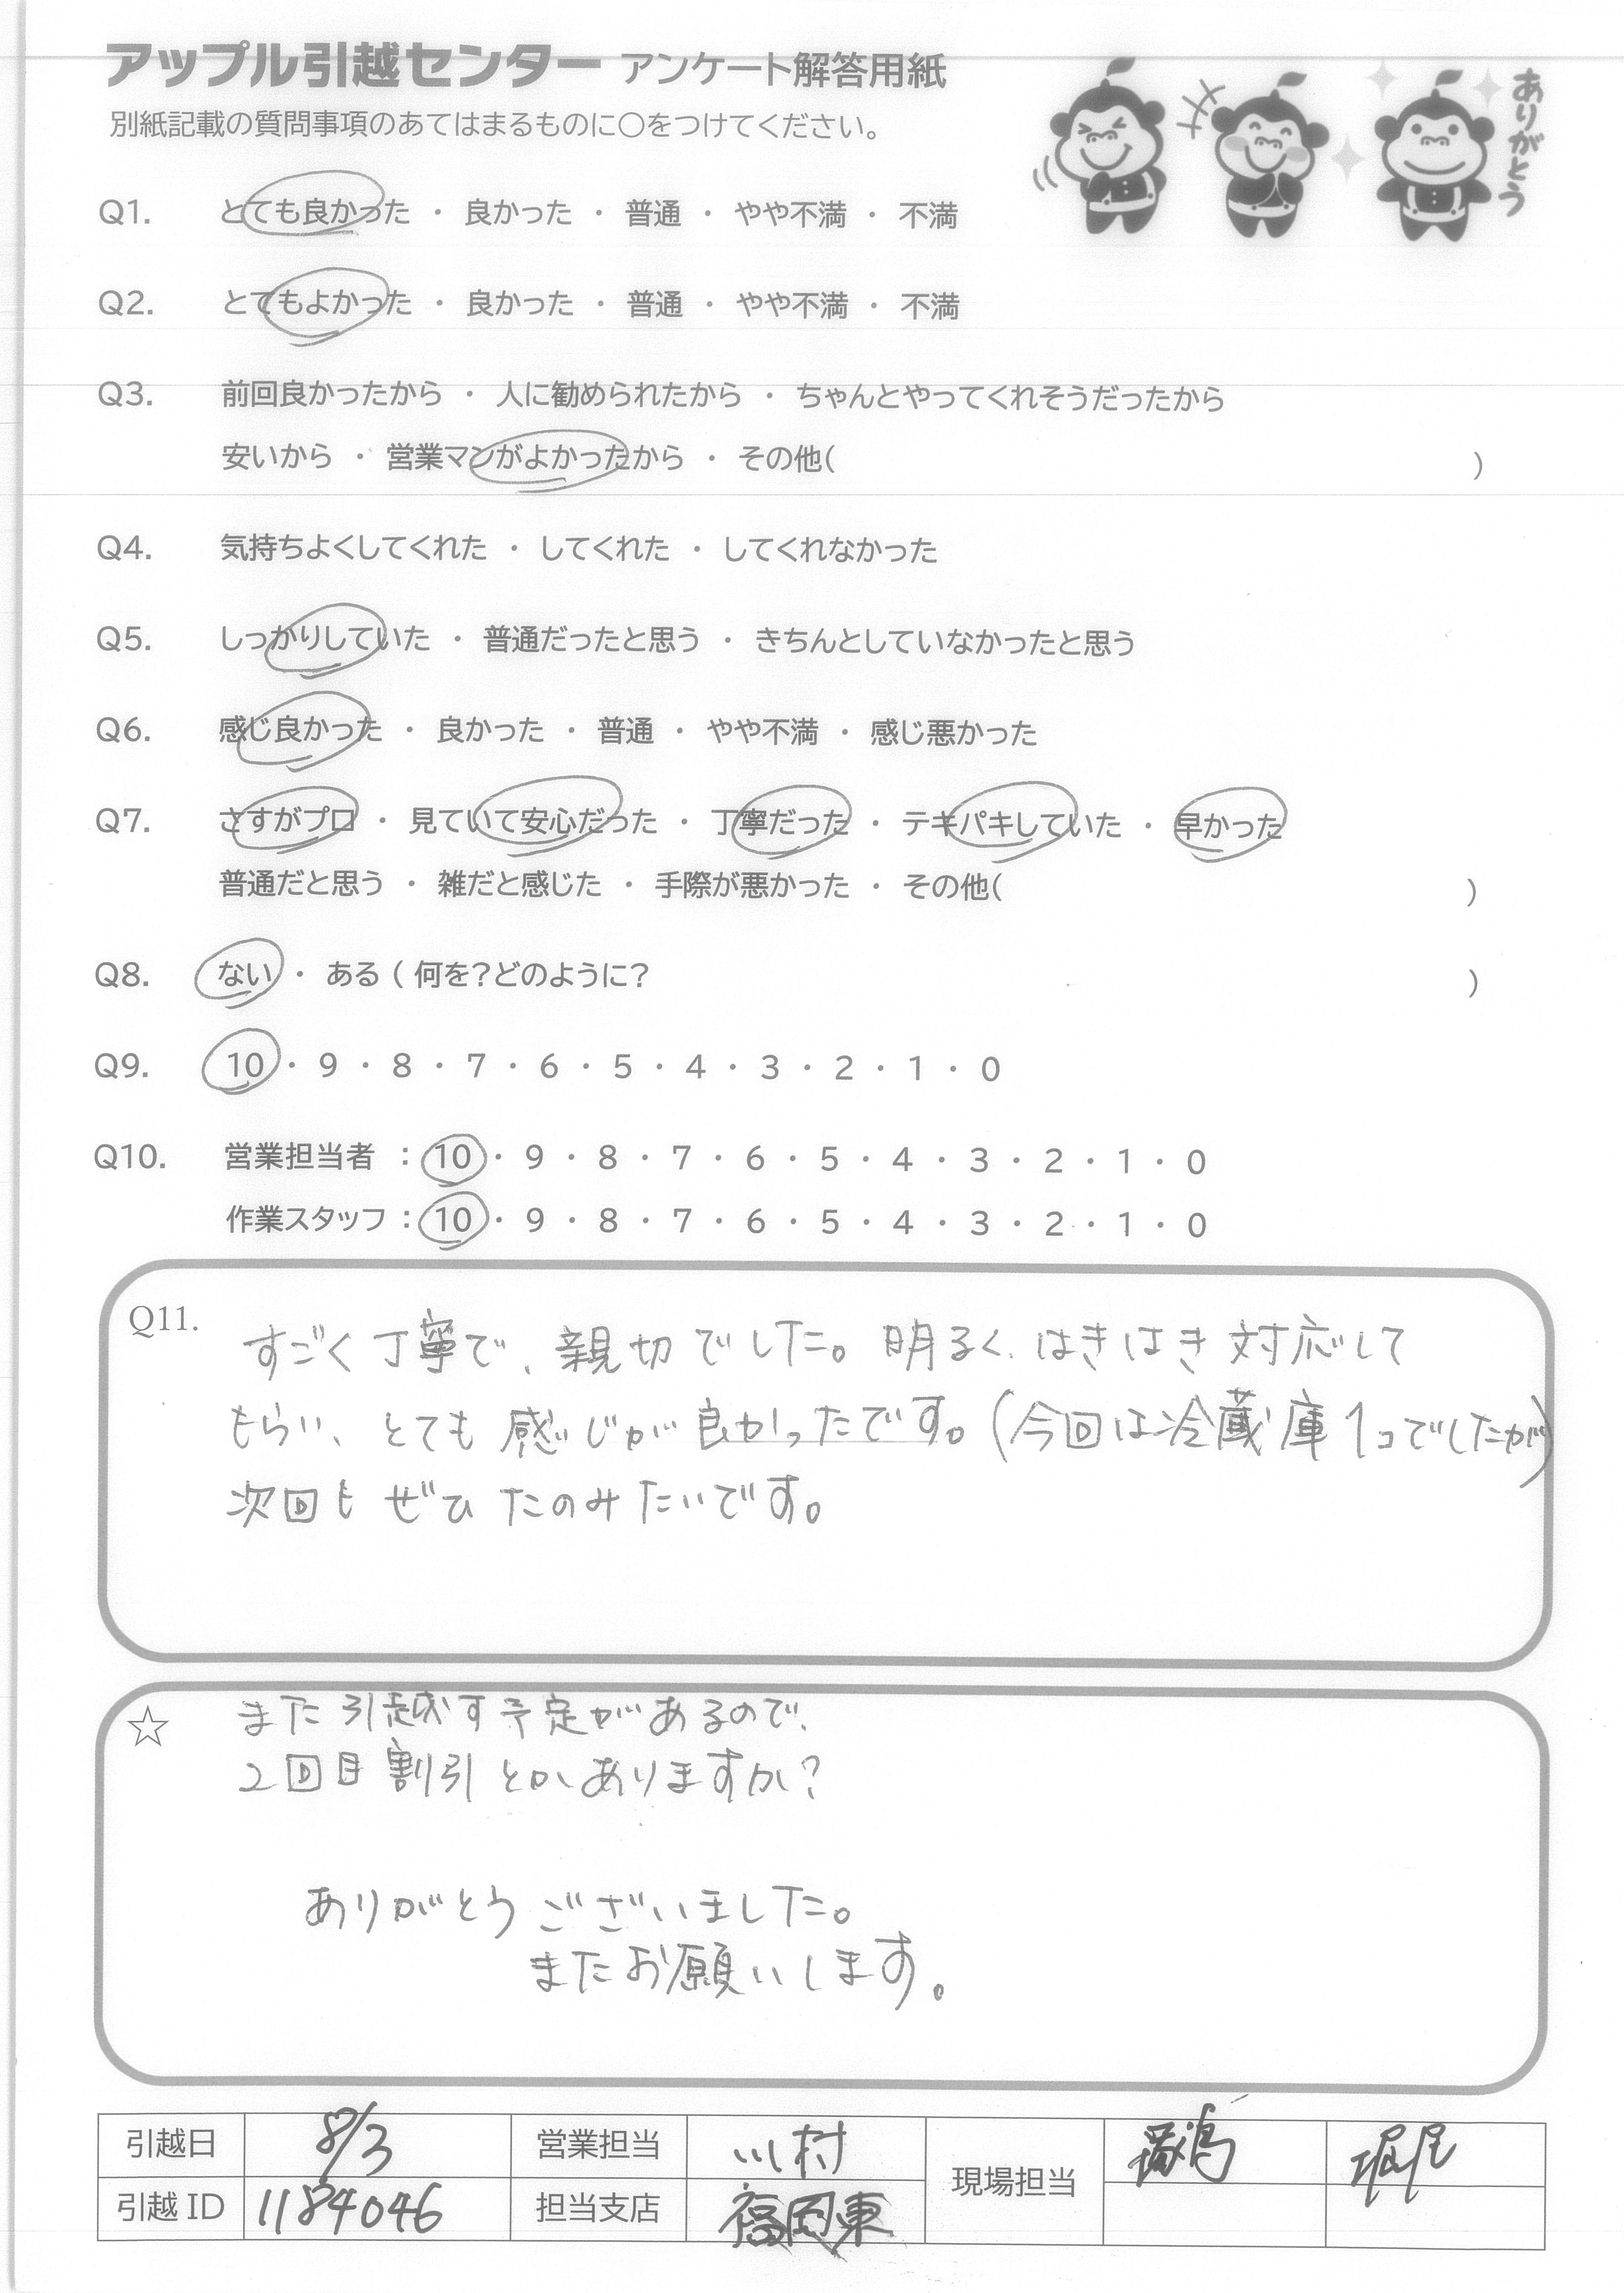 アップル引越センター アンケート解答用紙
別紙記載の質問事項のあてはまるものに○をつけてください。
ありがとう
Q1. とても良かった ・ 良かった ・ 普通 ・ やや不満 ・ 不満
Q2. とてもよかった ・ 良かった ・ 普通 ・ やや不満 ・ 不満
Q3. 前回良かったから ・ 人に勧められたから ・ ちゃんとやってくれそうだったから
安いから ・ 営業マンがよかったから ・ その他( )
Q4. 気持ちよくしてくれた ・ してくれた ・ してくれなかった
Q5. しっかりしていた ・ 普通だったと思う ・ きちんとしていなかったと思う
Q6. 感じ良かった ・ 良かった ・ 普通 ・ やや不満 ・ 感じ悪かった
Q7. さすがプロ ・ 見ていて安心だった ・ 丁寧だった ・ テキパキしていた ・ 早かった
普通だと思う ・ 雑だと感じた ・ 手際が悪かった ・ その他( )
Q8. ない ・ ある ( 何を?どのように? )
Q9. 10 ・ 9 ・ 8 ・ 7 ・ 6 ・ 5 ・ 4 ・ 3 ・ 2 ・ 1 ・ 0
Q10. 営業担当者 : 10 ・ 9 ・ 8 ・ 7 ・ 6 ・ 5 ・ 4 ・ 3 ・ 2 ・ 1 ・ 0
作業スタッフ : 10 ・ 9 ・ 8 ・ 7 ・ 6 ・ 5 ・ 4 ・ 3 ・ 2 ・ 1 ・ 0
Q11. すごく丁寧で、親切でした。明るく、はきはき対応して
もらい、とても感じが良かったです。(今回は冷蔵庫1コでしたが)
次回もぜひたのみたいです。
☆ また引越す予定があるので、
2回目割引とかありますか?
ありがとうございました。
またお願いします。
引越日 8/3 営業担当 川村 現場担当 堀尾
引越ID 1184046 担当支店 福岡東